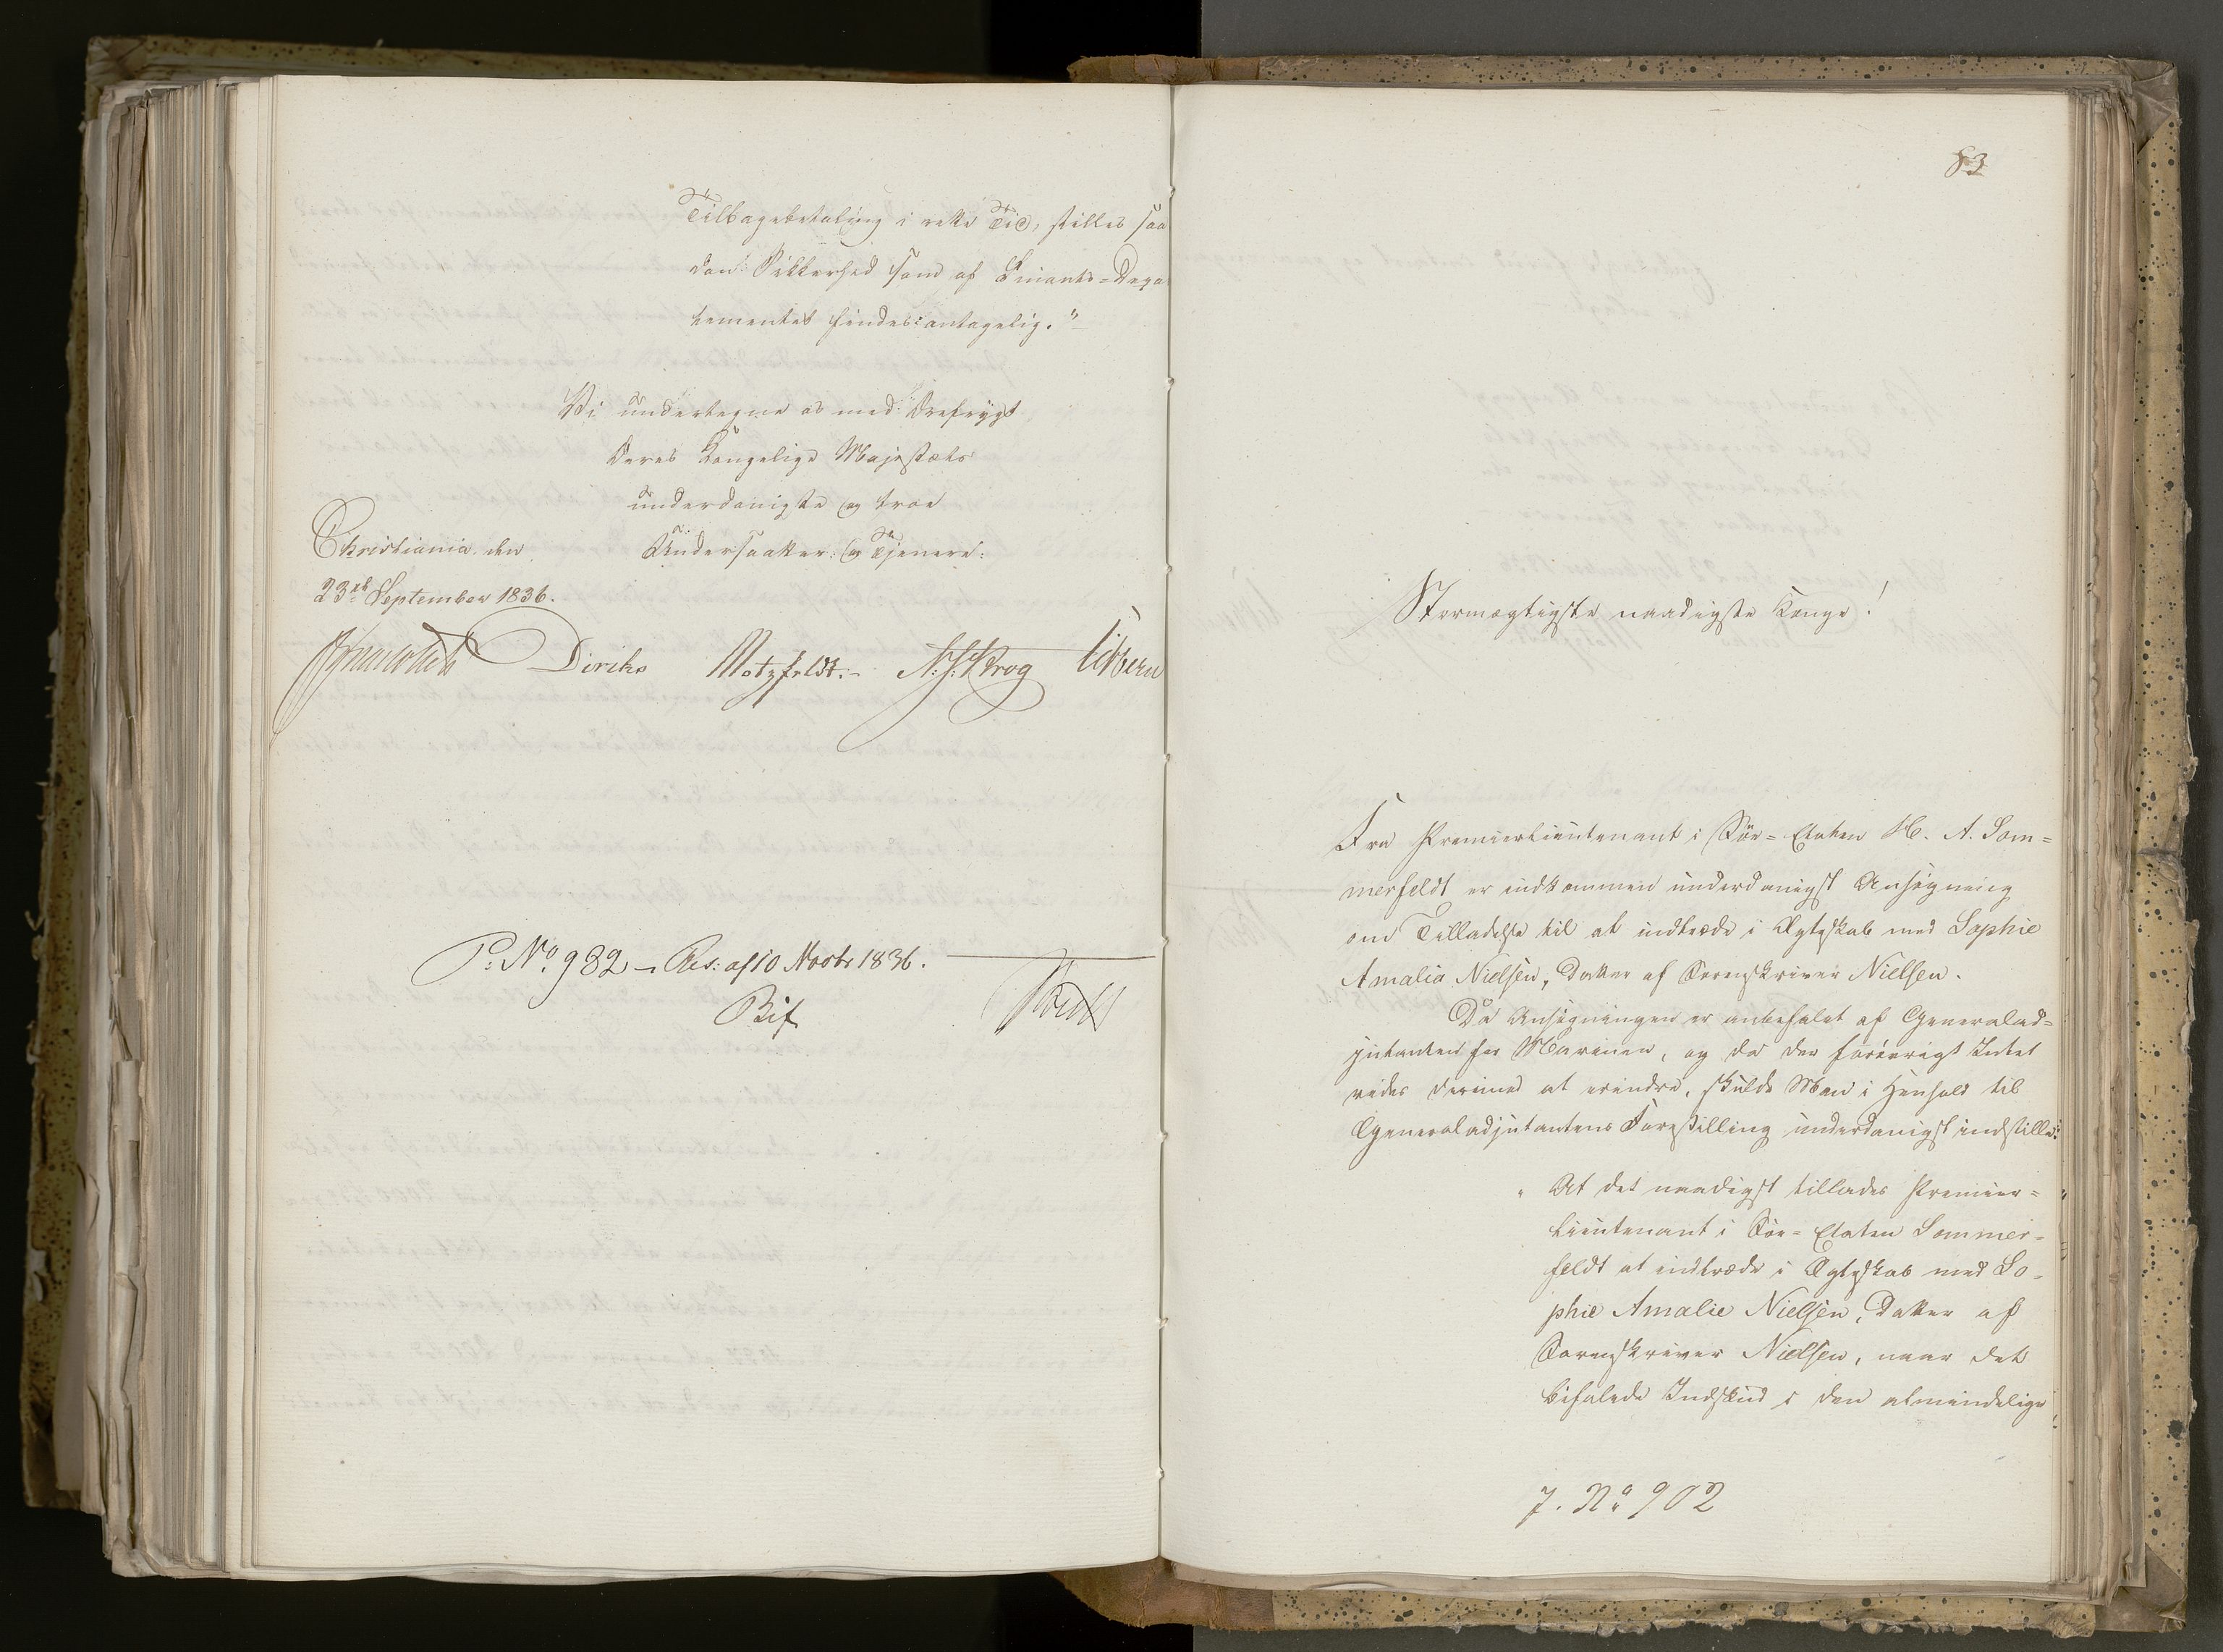 Tilbagebetaling i rette Tid, stilles saa
dan Sikkerhed som af Finants=Depa
tementet findes antagelig."
Vi undertegne os med Ærefrygt
Deres Kongelige Majestæts
underdanigste og troe
Christiania den
Undersaatter og Tjenere:
23de September 1836.
Diriks Motzfeldt. N. J. Krog Vibe
P: No. 982 – Res: af 10 Novbr 1836.
Bif
83
Stormægtigste naadigste Konge!
Fra Premierlieutenant i Søe=Etaten H. A. Som=
merfeldt er indkommen underdanigst Ansøgning
om Tilladelse til at indtræde i Ægteskab med Sophie
Amalia Nielsen, Datter af Sorenskriver Nielsen.
Da Ansøgningen er anbefalet af Generalad=
jutanten for Marinen, og da der forøvrigt Intet
vides derimod at erindre, skulde Man i Henhold til
Generaladjutantens Forestilling underdanigst indstille:
"At det naadigst tillades Premier=
lieutenant i Søe=Etaten Sommer=
feldt at indtræde i Ægteskab med So=
phie Amalie Nielsen, Datter af
Sorenskriver Nielsen, naar det
befalede Indskud i den almindelige
7. No. 902